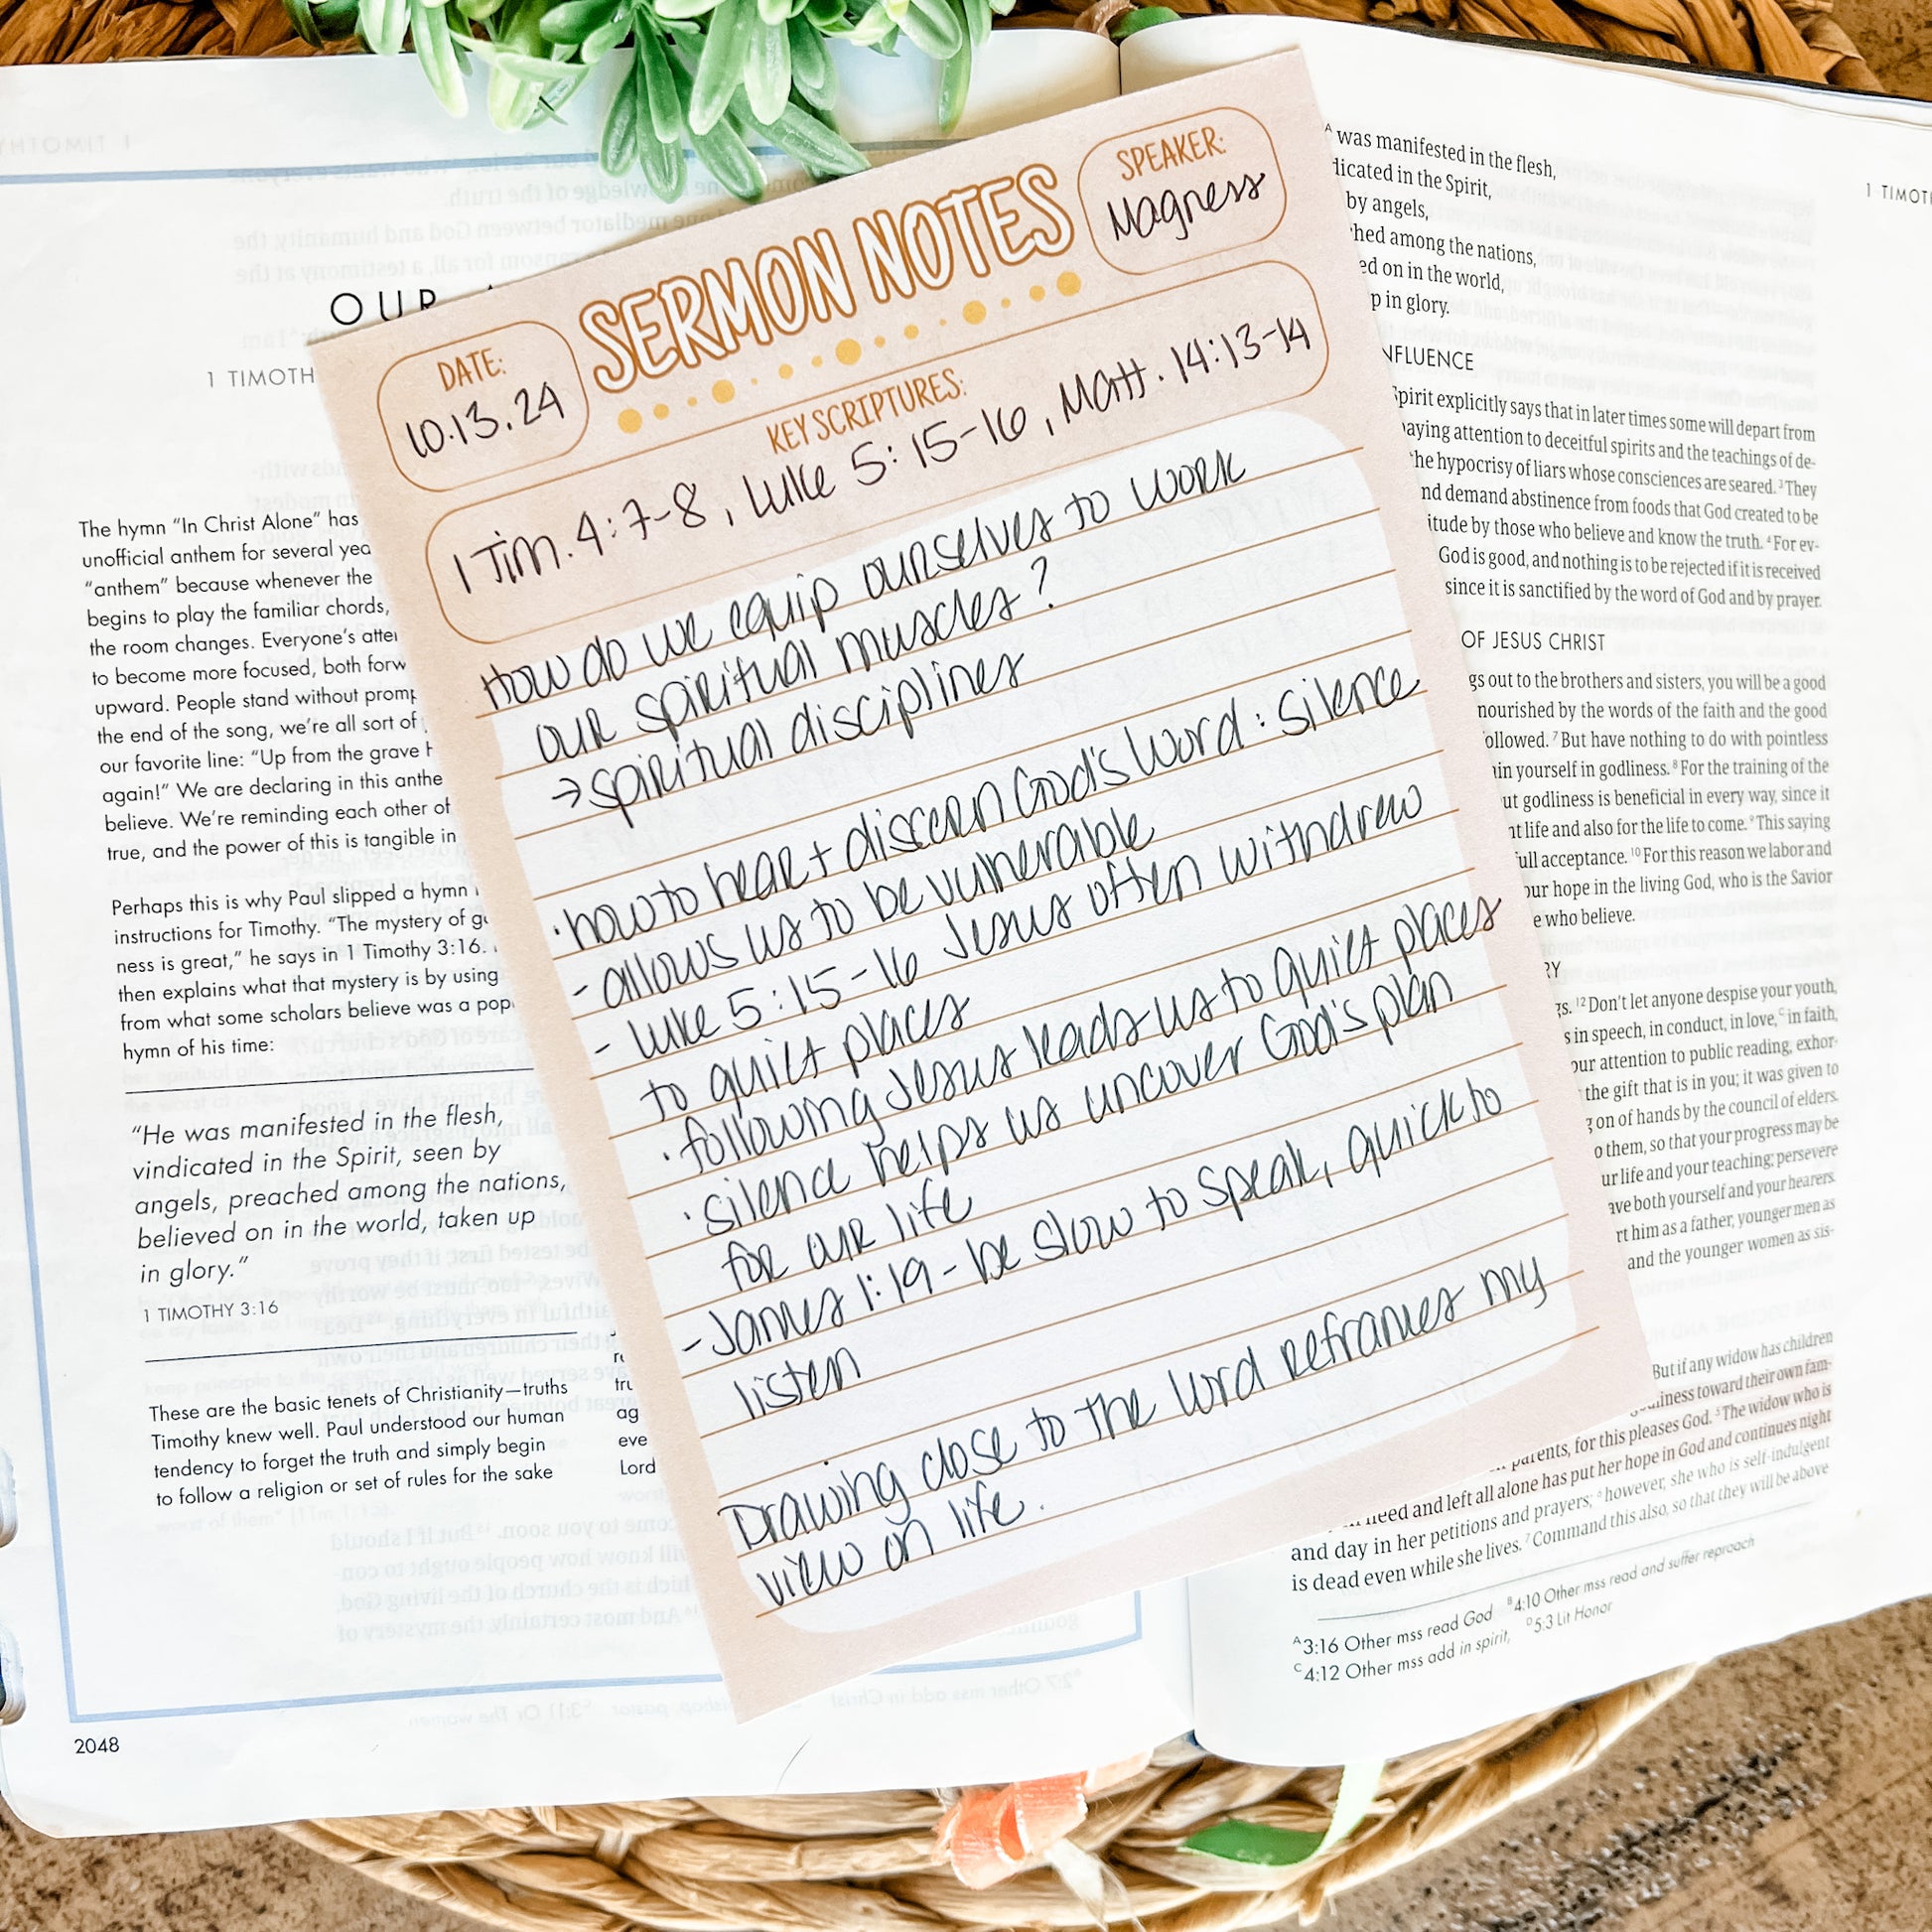 OUR
1 TIMOTH
The hymn “In Christ Alone” has
unofficial anthem for several yea
“anthem” because whenever the
begins to play the familiar chords,
the room changes. Everyone’s atte
to become more focused, both forw
upward. People stand without promp
the end of the song, we’re all sort of
our favorite line: “Up from the grave h
again!” We are declaring in this anthe
believe. We’re reminding each other of
true, and the power of this is tangible in
Perhaps this is why Paul slipped a hymn
instructions for Timothy. “The mystery of g
ness is great,” he says in 1 Timothy 3:16.
then explains what that mystery is by using
from what some scholars believe was a pop
hymn of his time:
“He was manifested in the flesh,
vindicated in the Spirit, seen by
angels, preached among the nations,
believed on in the world, taken up
in glory.”
1 TIMOTHY 3:16
These are the basic tenets of Christianity—truths
Timothy knew well. Paul understood our human
tendency to forget the truth and simply begin
to follow a religion or set of rules for the sake
tru
ag
eve
Lord
2048
SERMON NOTES
SPEAKER:
Magness
DATE:
10.13.24
KEY SCRIPTURES:
1 Tim. 4:7-8, Luke 5:15-16, Matt. 14:13-14
How do we equip ourselves to work
our spiritual muscles?
→ spiritual disciplines
· how to hear + discern God's Word: silence
- allows us to be vulnerable
- Luke 5:15-16 Jesus often withdrew
to quiet places
· following Jesus leads us to quiet places
· silence helps us uncover God's plan
for our life
- James 1:19 - be slow to speak, quick to
listen
Drawing close to the Lord reframes my
view on life.
1 TIMOT
A was manifested in the flesh,
dicated in the Spirit,
by angels,
hed among the nations,
ed on in the world,
p in glory.
NFLUENCE
Spirit explicitly says that in later times some will depart from
aying attention to deceitful spirits and the teachings of de-
he hypocrisy of liars whose consciences are seared. 3 They
nd demand abstinence from foods that God created to be
itude by those who believe and know the truth. 4 For ev-
God is good, and nothing is to be rejected if it is received
since it is sanctified by the word of God and by prayer.
OF JESUS CHRIST
gs out to the brothers and sisters, you will be a good
nourished by the words of the faith and the good
ollowed. 7 But have nothing to do with pointless
in yourself in godliness. 8 For the training of the
ut godliness is beneficial in every way, since it
nt life and also for the life to come. 9 This saying
full acceptance. 10 For this reason we labor and
our hope in the living God, who is the Savior
e who believe.
RY
gs. 12 Don’t let anyone despise your youth,
s in speech, in conduct, in love, C in faith,
our attention to public reading, exhor-
the gift that is in you; it was given to
g on of hands by the council of elders.
o them, so that your progress may be
ur life and your teaching; persevere
ave both yourself and your hearers.
rt him as a father, younger men as
and the younger women as sis-
But if any widow has children
liness toward their own fam-
parents, for this pleases God. 5 The widow who is
need and left all alone has put her hope in God and continues night
and day in her petitions and prayers; 6 however, she who is self-indulgent
is dead even while she lives. 7 Command this also, so that they will be above
A 3:16 Other mss read God B 4:10 Other mss read and suffer reproach
C 4:12 Other mss add in spirit, D 5:3 Lit Honor